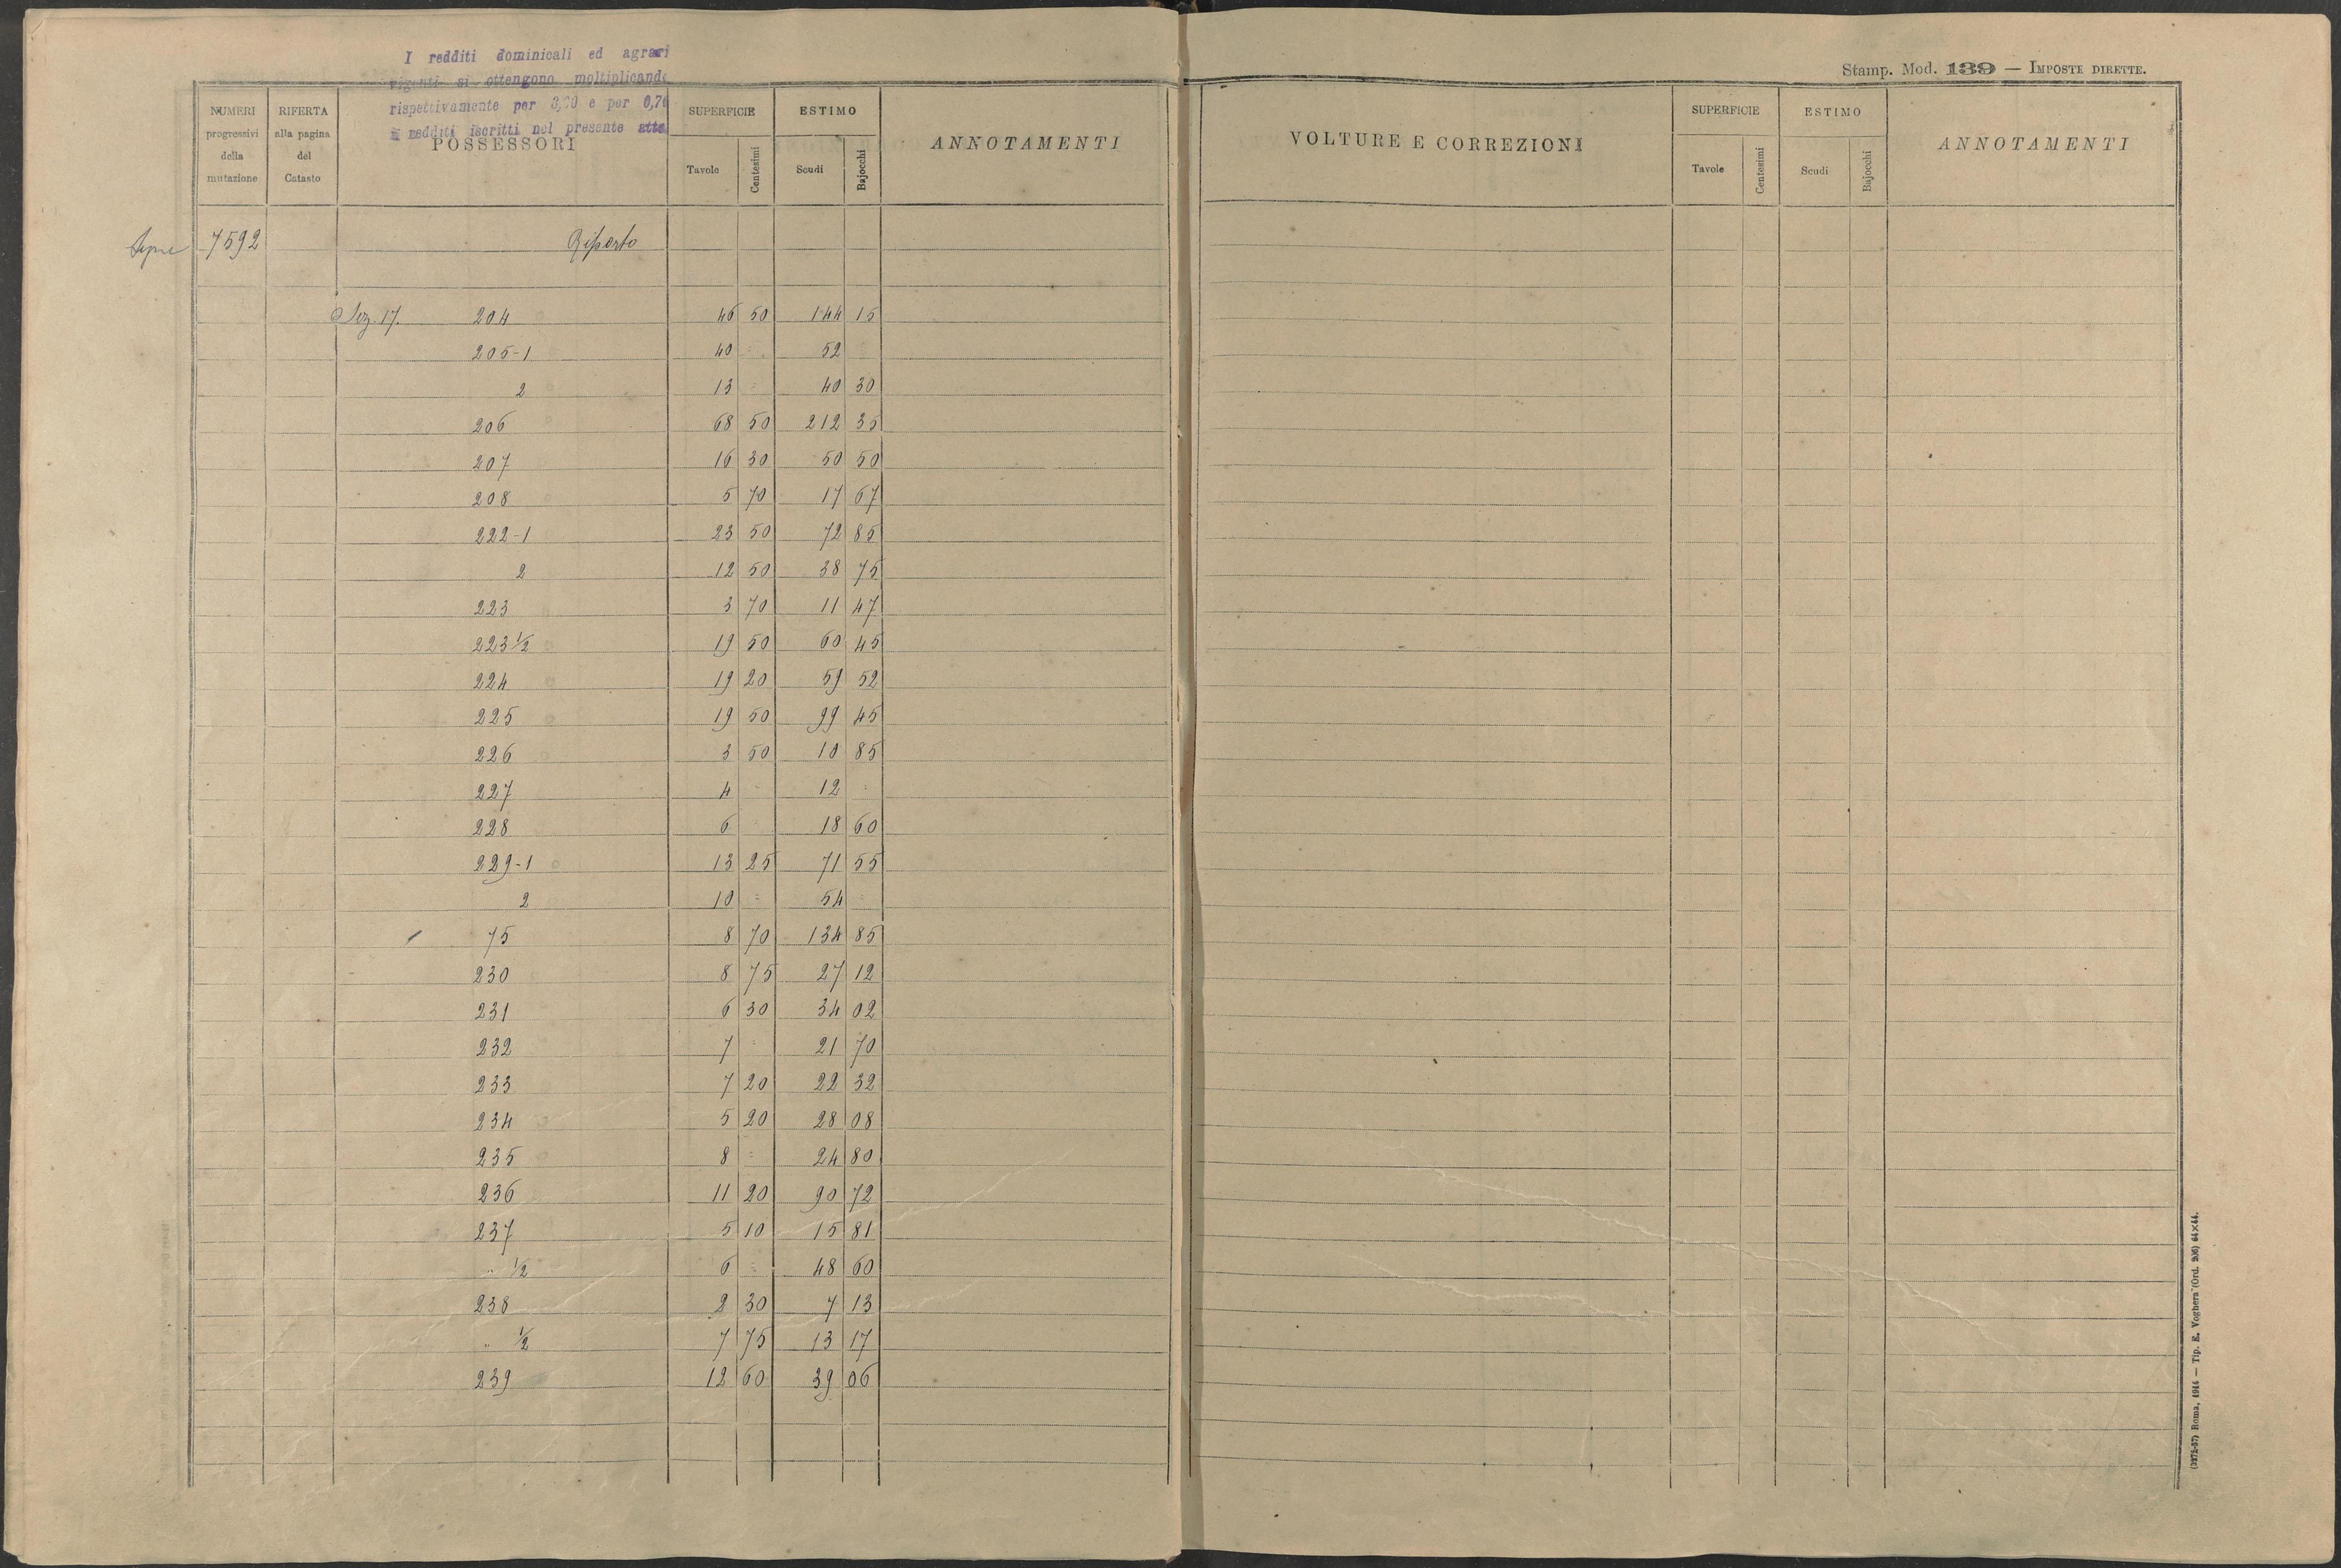 I redditi dominicali ed agrari
vigenti si ottengono moltiplicando
rispettivamente per 3,20 e per 0,70
i redditi iscritti nel presente atto
Stamp. Mod. 139 — IMPOSTE DIRETTE.
NUMERI progressivi della mutazione
RIFERTA alla pagina del Catasto
POSSESSORI
SUPERFICIE Tavole Centesimi
ESTIMO Scudi Bajocchi
ANNOTAMENTI
VOLTURE E CORREZIONI
SUPERFICIE Tavole Centesimi
ESTIMO Scudi Bajocchi
ANNOTAMENTI
Segue 7592 Riporto
Sez. 17. 204 46 50 144 15
205-1 40 = 52 =
2 13 = 40 30
206 68 50 212 35
207 16 30 50 50
208 5 70 17 67
222-1 23 50 72 85
2 12 50 38 75
223 3 70 11 47
223 1/2 19 50 60 45
224 19 20 59 52
225 19 50 99 45
226 3 50 10 85
227 4 = 12 =
228 6 = 18 60
229-1 13 25 71 55
2 10 = 54 =
75 8 70 134 85
230 8 75 27 12
231 6 30 34 02
232 7 = 21 70
233 7 20 22 32
234 5 20 28 08
235 8 = 24 80
236 11 20 90 72
237 5 10 15 81
" 1/2 6 = 48 60
238 2 30 7 13
" 1/2 7 75 13 17
239 12 60 39 06
Roma, 1914 — Tip. E. Voghera (Ord. 206) 64×44.